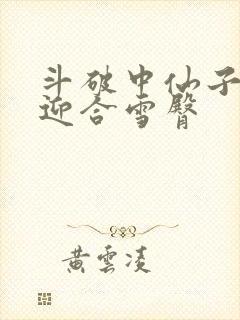 斗破中仙子
迎合雪臀
黄雲凌